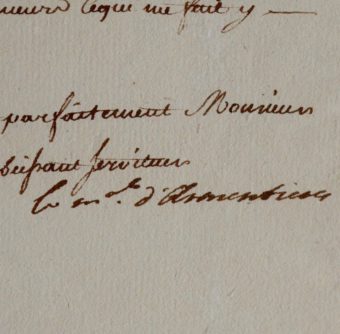 ce qui me fait y
parfaitement Monsieur
béissant serviteur
le m.al d'Armentieres